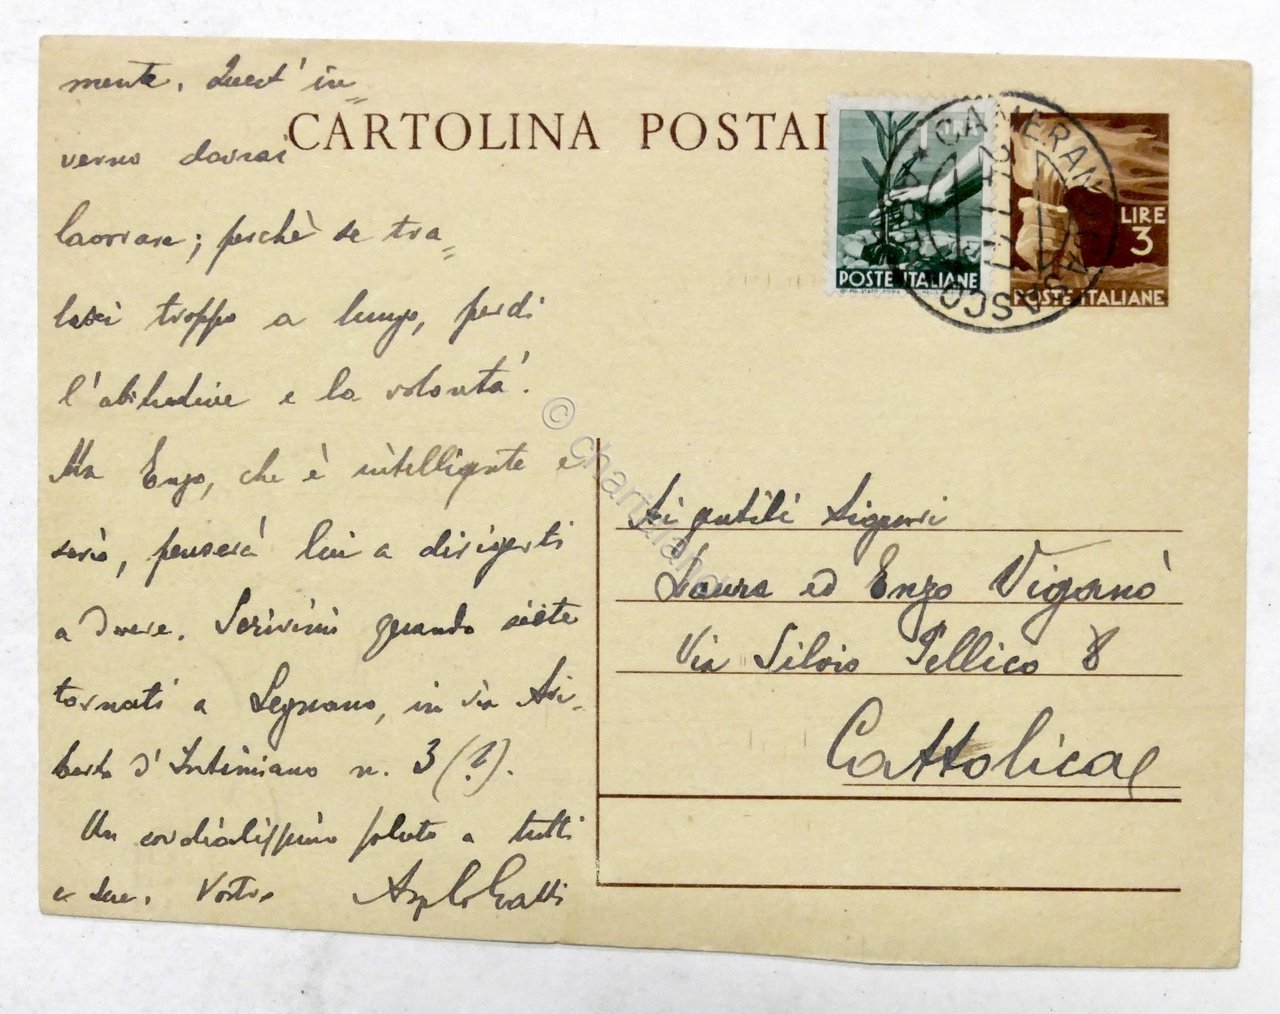 mente. Quest' in=
CARTOLINA POSTAL
verno dovrai
lavorare; perchè se tra=
lasci troppo a lungo, perdi
l'abitudine e la volontà.
Ma Enzo, che è intelligente e
serio, penserà lui a dirigerti
a dovere. Scrivimi quando siete
tornati a Legnano, in via Ari=
berto d'Intimiano n. 3 (?).
Un cordialissimo saluto a tutti
e due. Vostro
1 LIRA
POSTE ITALIANE
LIRE
3
POSTE ITALIANE
CAMERANO CASASCO
Ai gentili Signori
Laura ed Enzo Viganò
Via Silvio Pellico 8
Cattolica
© chartaland